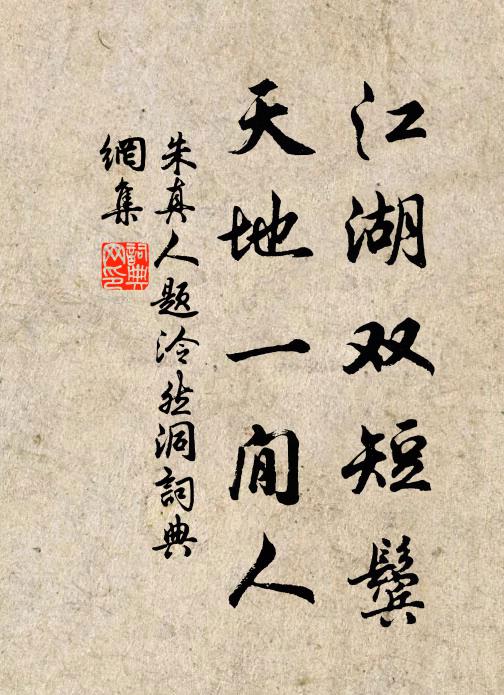 江湖双短鬓
天地一閒人
朱真人题泠然洞詞典
網集
詞典網印